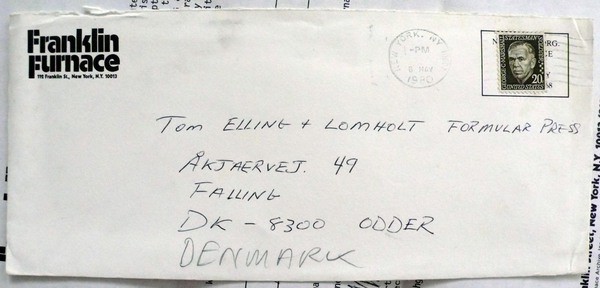 Franklin
Furnace
112 Franklin St., New York, N.Y. 10013
NEW YORK, NY
PM
MAY
1980
20
TOM ELLING + LOMHOLT FORMULAR PRESS
ÅKJAERVEJ. 49
FALLING
DK - 8300 ODDER
DENMARK
klin Street, New York, N.Y. 10013